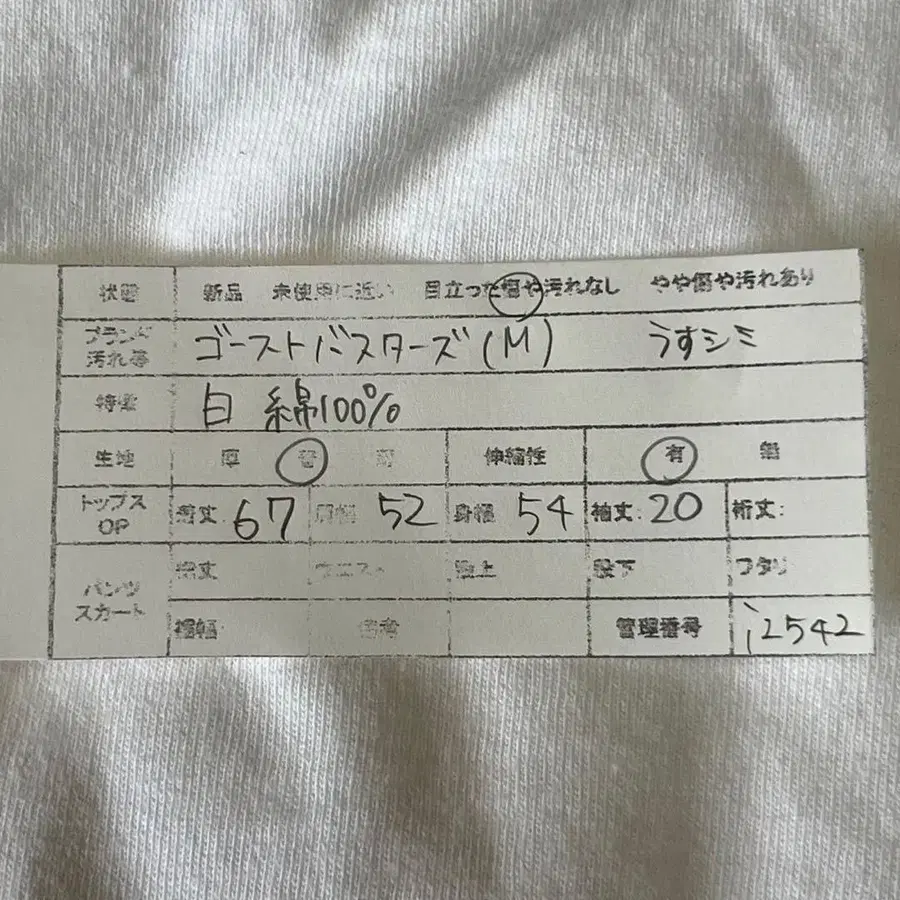 状態 新品 未使用に近い 目立った傷や汚れなし やや傷や汚れあり
ブランド
汚れ等 ゴーストバスターズ(M) うすシミ
特徴 白 綿100%
生地 厚 普 薄 伸縮性 有 無
トップス
OP 着丈: 67 肩幅 52 身幅 54 袖丈: 20 裄丈:
パンツ
スカート 総丈 ウエスト 股上 股下 ワタリ
裾幅 備考 管理番号 i2542